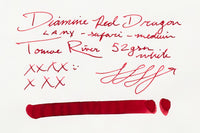 Diamine Red Dragon
LAMY - safari - medium
Tomoe River 52gsm
white
XX/XX ::
X XX